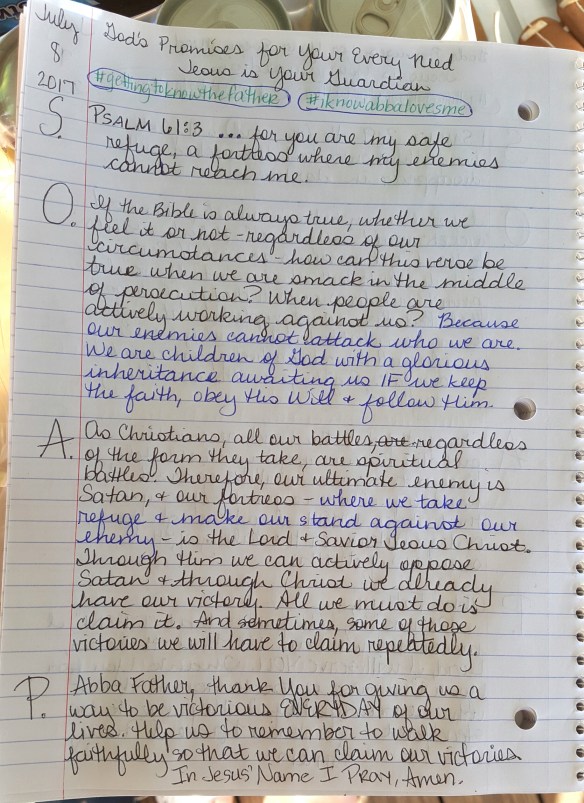 July 8 2017
God's Promises for Your Every Need
Jesus is Your Guardian
#gettingtoknowthefather #iknowabbalovesme
S. PSALM 61:3 ... for you are my safe
refuge, a fortress where my enemies
cannot reach me.
O. If the Bible is always true, whether we
feel it or not - regardless of our
circumstances - how can this verse be
true when we are smack in the middle
of persecution? When people are
actively working against us? Because
our enemies cannot attack who we are.
We are children of God with a glorious
inheritance awaiting us IF we keep
the faith, obey His Will + follow Him.
A. As Christians, all our battles, are regardless
of the form they take, are spiritual
battles. Therefore, our ultimate enemy is
Satan, + our fortress - where we take
refuge + make our stand against our
enemy - is the Lord + Savior Jesus Christ.
Through Him we can actively oppose
Satan + through Christ we already
have our victory. All we must do is
claim it. And sometimes, some of those
victories we will have to claim repeatedly.
P. Abba Father, thank You for giving us a
way to be victorious EVERYDAY of our
lives. Help us to remember to walk
faithfully so that we can claim our victories.
In Jesus' Name I Pray, Amen.